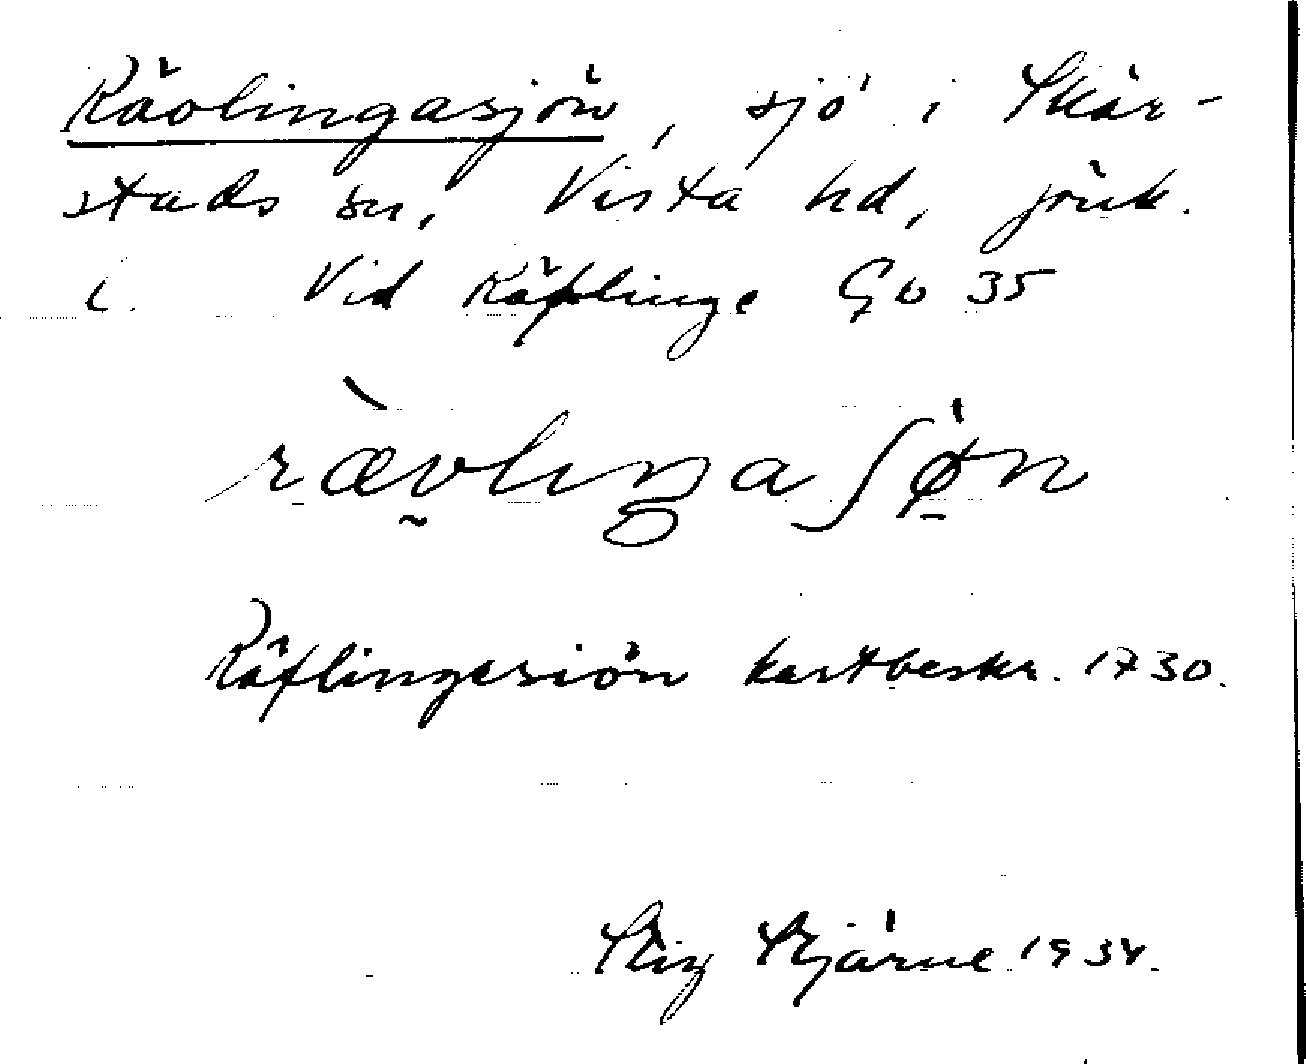 Rävlingasjön, sjö i Skär-
stads sn, Vista hd, Jönk.
l. Vid Räflinge Gb 35
rævliŋaʃøn
Räflingesiön kartbeskr. 1730.
Stig Stjärne 1934.